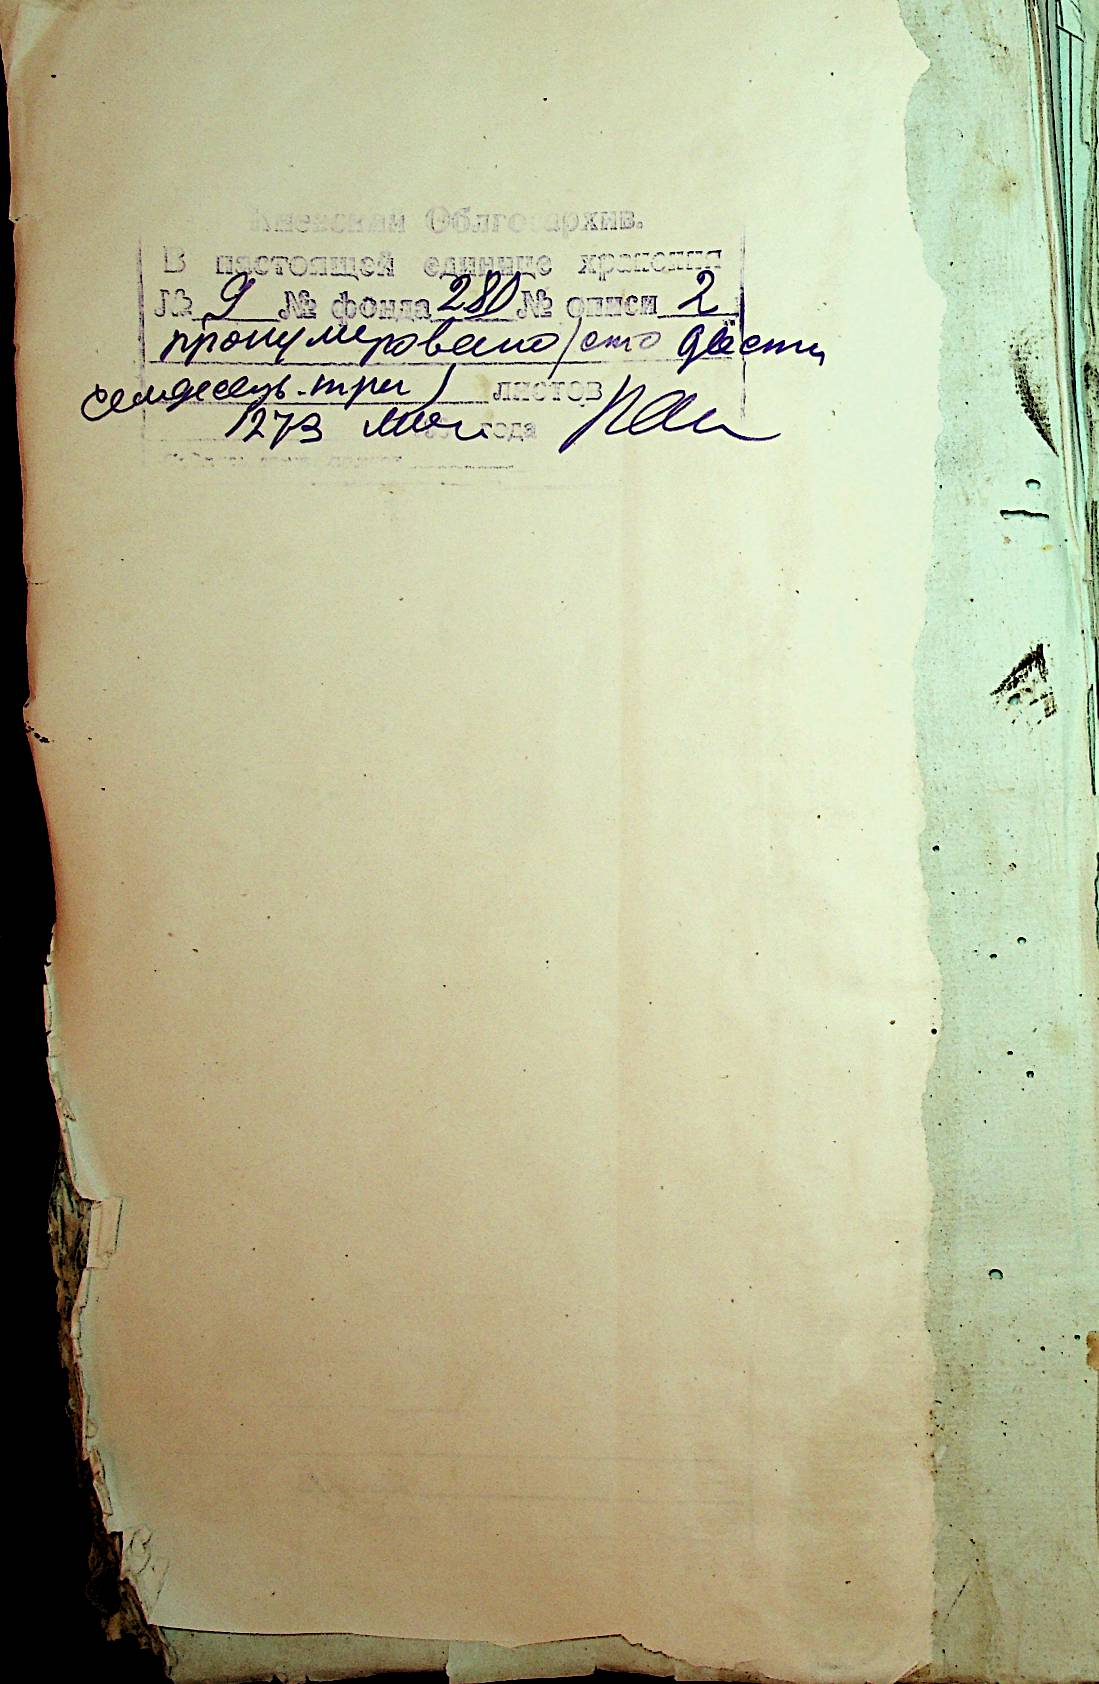 Киевский Облгосархив.
В настоящей единице хранения
№ 9 № фонда 280 № описи 2
пронумеровано (сто двести
семдесять три) листов
273 года